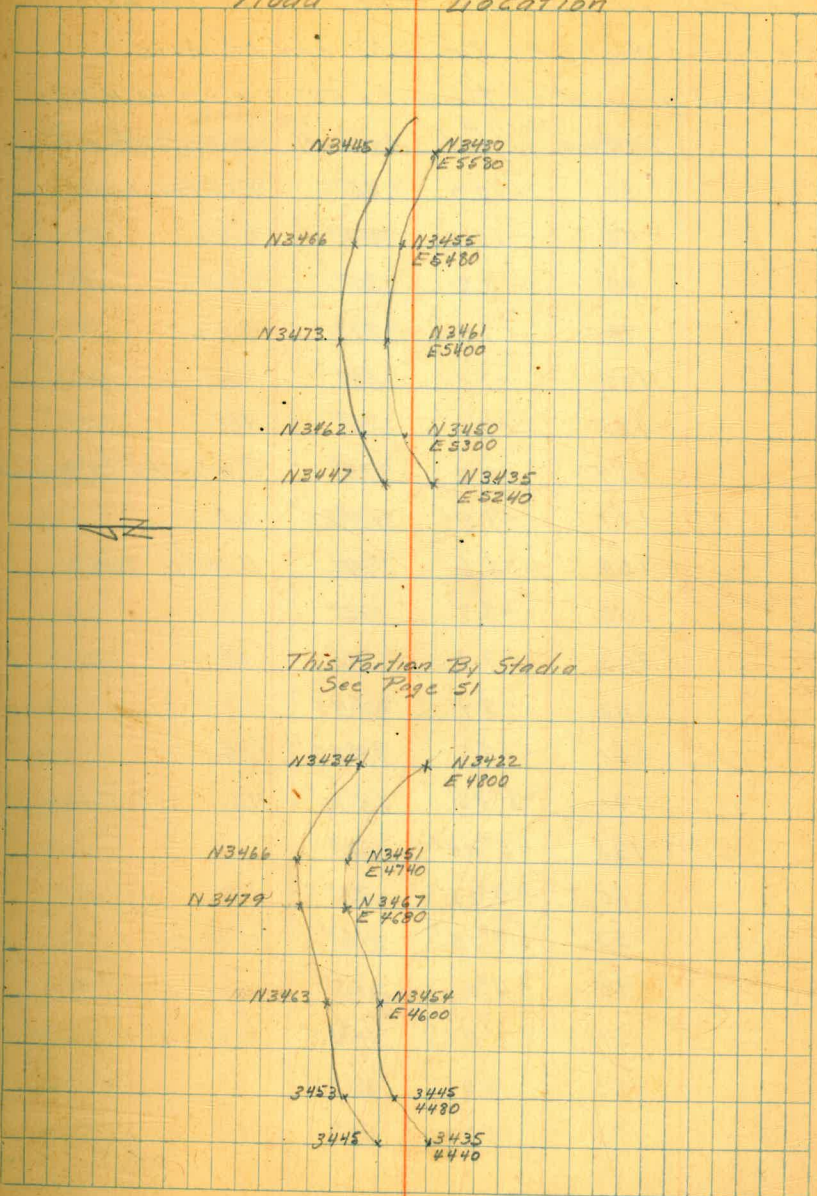 Road Location
N3445 N3430
E5580
N3466 N3455
E5480
N3473 N3461
E5400
N3462 N3450
E5300
N3447 N3435
E5240
N
This Portion By Stadia
See Page 51
N3434 N3422
E4800
N3466 N3451
E4740
N3479 N3467
E4680
N3463 N3454
E4600
3453 3445
4480
3445 3435
4440